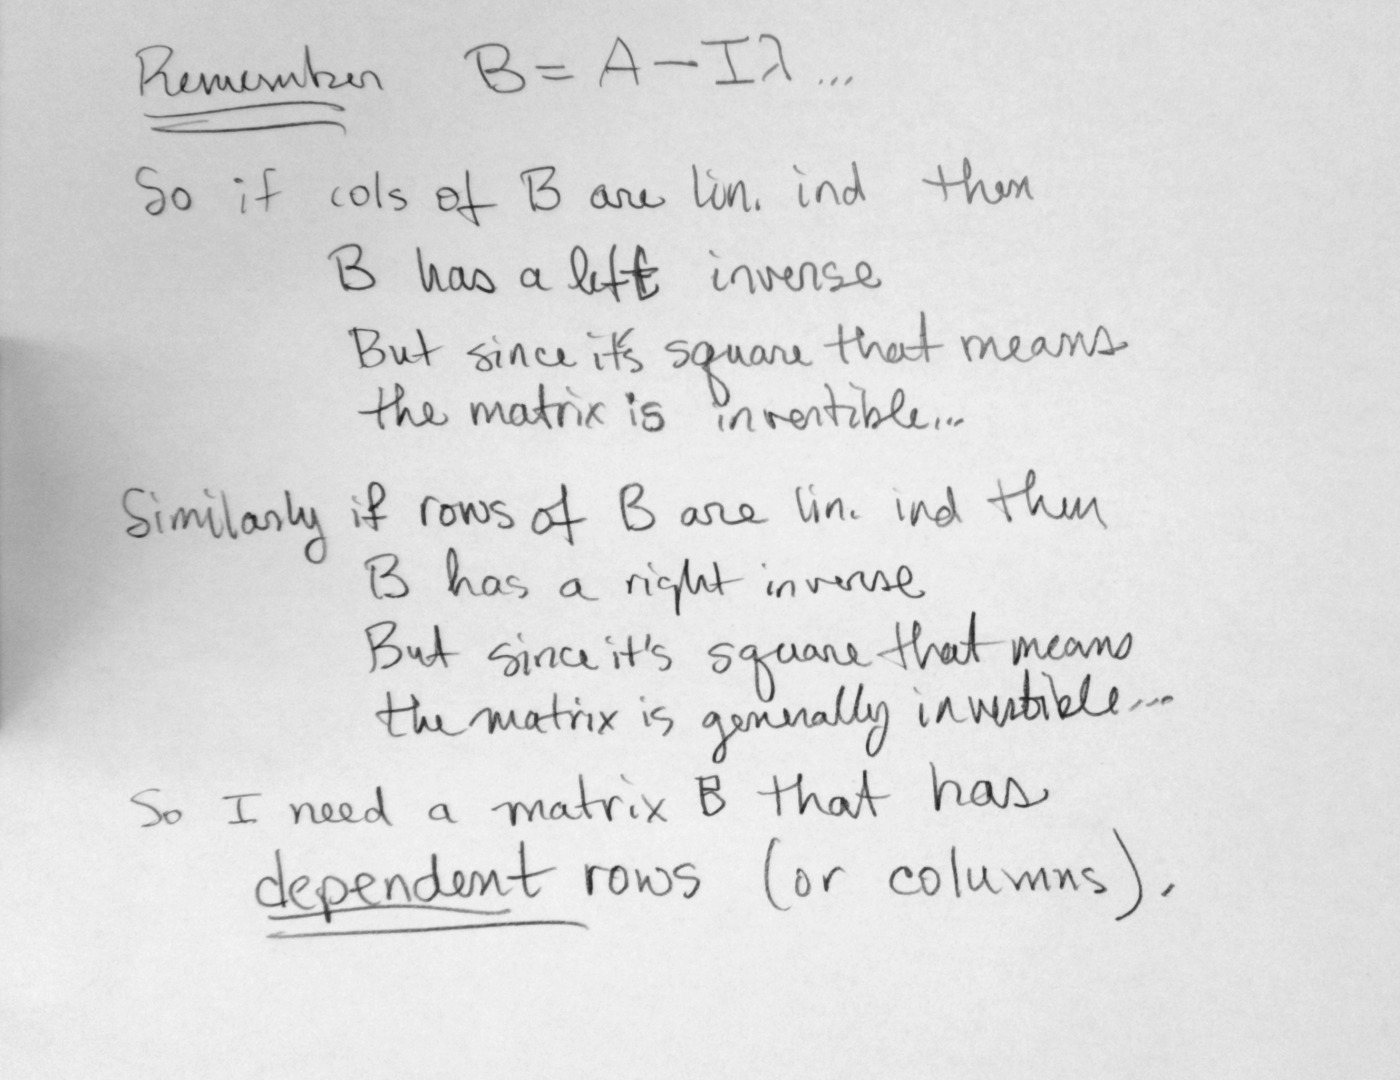 Remember B = A - Iλ ...
So if cols of B are lin. ind then
B has a left inverse
But since it's square that means
the matrix is invertible...
Similarly if rows of B are lin. ind then
B has a right inverse
But since it's square that means
the matrix is generally invertible...
So I need a matrix B that has
dependent rows (or columns).